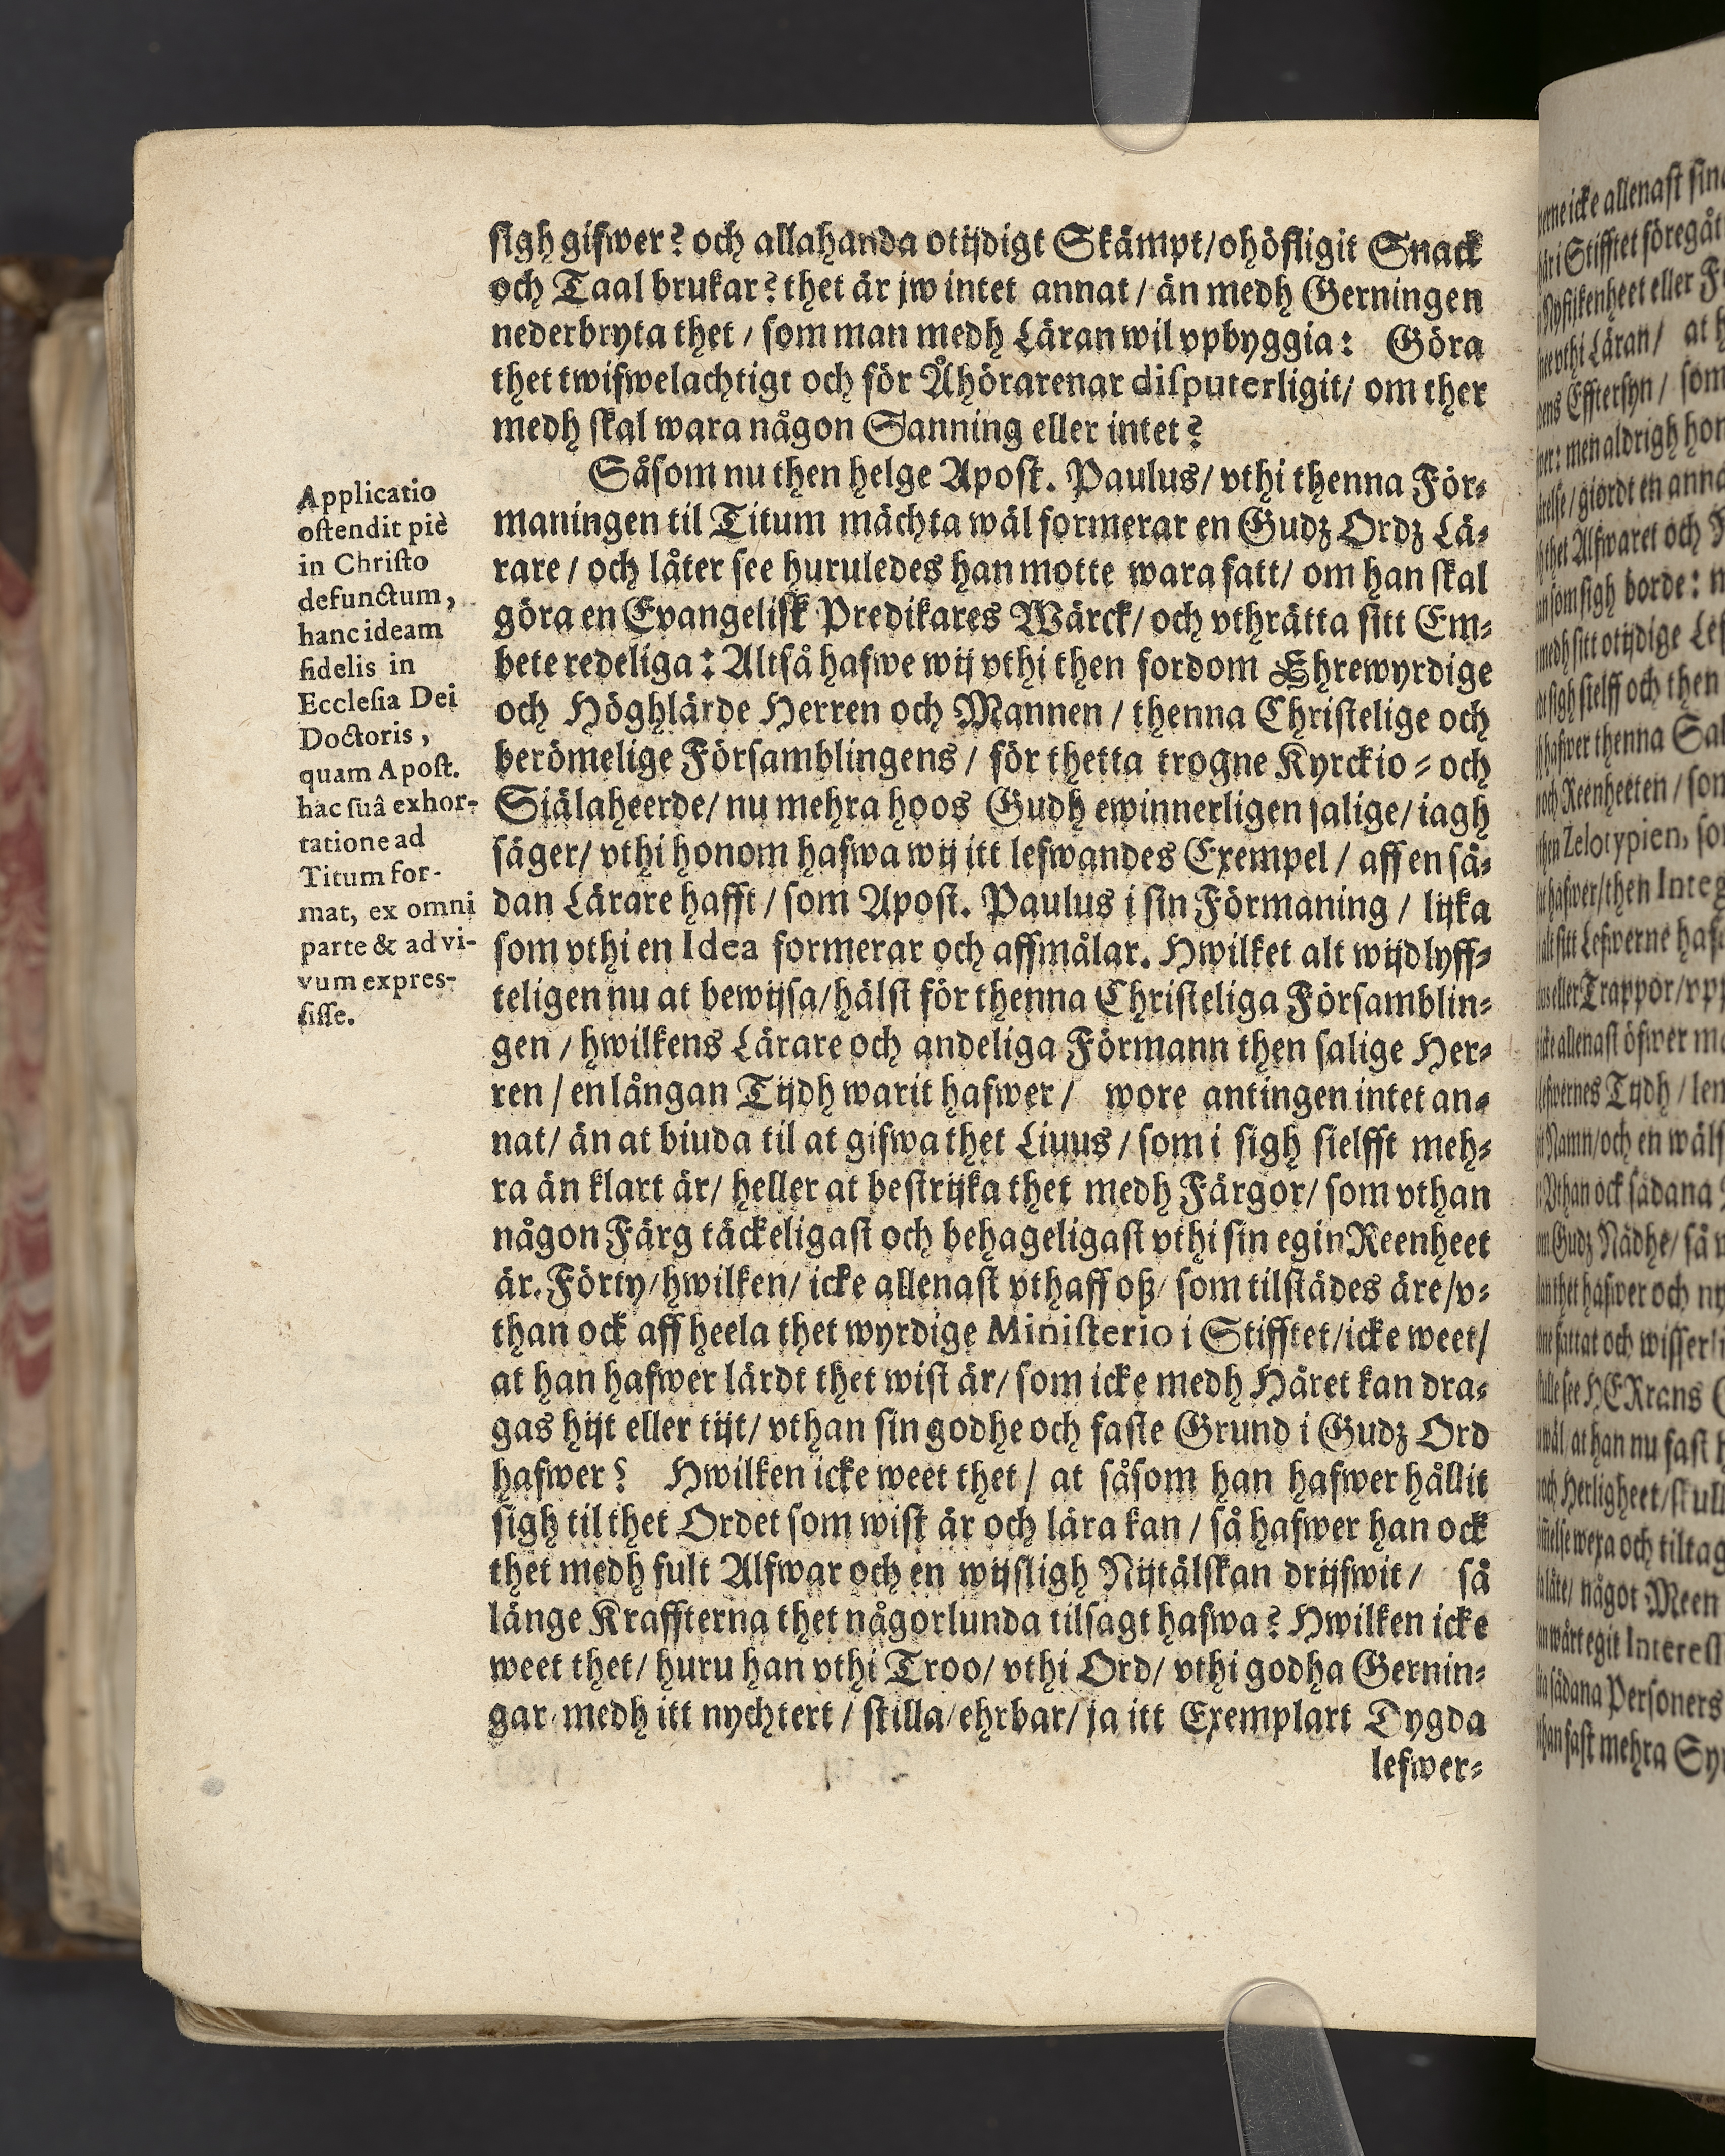 sigh gifwer? och allahanda otijdigt Skämpt/ohöfligit Snack
och Taal brukar? thet är jw intet annat / än medh Gerningen
nederbryta thet / som man medh Läran wil vpbyggia: Göra
thet twifwelachtigt och för Åhörarenar disputerligit/ om ther
medh skal wara någon Sanning eller intet?
Såsom nu then helge Apost. Paulus/ vthi thenna För-
maningen til Titum mächta wäl formerar en Gudz Ordz Lä-
rare / och låter see huruledes han motte wara fatt/ om han skal
göra en Evangelisk Predikares Wärck/ och vthrätta sitt Em-
bete redeliga: Altså hafwe wij vthi then fordom Ehrewyrdige
och Höghlärde Herren och Mannen / thenna Christelige och
berömelige Församblingens / för thetta trogne Kyrckio- och
Siälaheerde/ nu mehra hoos Gudh ewinnerligen salige/ iagh
säger/ vthi honom hafwa wij itt lefwandes Exempel / aff en så-
dan Lärare hafft / som Apost. Paulus i sin Förmaning / lijka
som vthi en Idea formerar och affmålar. Hwilket alt wijdlyff-
teligen nu at bewijsa/hälst för thenna Christeliga Församblin-
gen / hwilkens Lärare och andeliga Förmann then salige Her-
ren / en långan Tijdh warit hafwer / wore antingen intet an-
nat/ än at biuda til at gifwa thet Liuus / som i sigh sielfft meh-
ra än klart är/ heller at bestrijka thet medh Färgor/ som vthan
någon Färg täckeligast och behageligast vthi sin egin Reenheet
är. Förty/hwilken/ icke allenast vthaff oß/ som tilstädes äre/v-
than ock aff heela thet wyrdige Ministerio i Stifftet/icke weet/
at han hafwer lärdt thet wist är/ som icke medh Häret kan dra-
gas hijt eller tijt/ vthan sin godhe och faste Grund i Gudz Ord
hafwer? Hwilken icke weet thet / at såsom han hafwer hållit
sigh til thet Ordet som wist är och lära kan / så hafwer han ock
thet medh fult Alfwar och en wijsligh Nijtälskan drijfwit / så
länge Kraffterna thet någorlunda tilsagt hafwa? Hwilken icke
weet thet/ huru han vthi Troo/ vthi Ord/ vthi godha Gernin-
gar/ medh itt nychtert / stilla/ehrbar/ ja itt Exemplart Dygda
lefwer-
Applicatio
ostendit piè
in Christo
defunctum,
hanc ideam
fidelis in
Ecclesia Dei
Doctoris,
quam Apost.
hac suâ exhor-
tatione ad
Titum for-
mat, ex omni
parte & ad vi-
vum expres-
sisse.